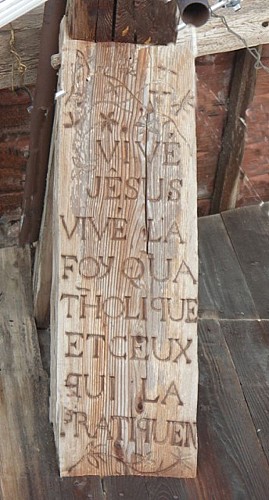 VIVE
JESUS
VIVE LA
FOY QUA
THOLIQUE
ET CEUX
QUI LA
PRATIQUEN